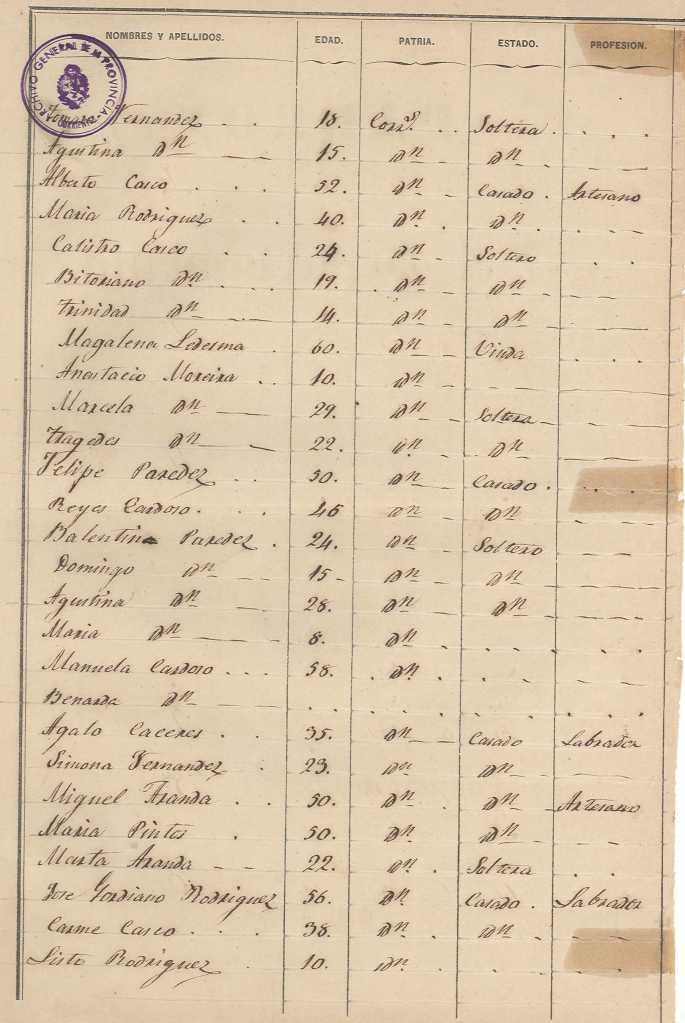 NOMBRES Y APELLIDOS. EDAD. PATRIA. ESTADO. PROFESION.
ARCHIVO GENERAL DE LA PROVINCIA CORRIENTES
Fernandez . . 18. Corr.s . . Soltera . . . . .
Agustina Dn — 15. Dn — Dn — . . .
Alberto Casco . . . 52. Dn — Casado . Artesano
Maria Rodriguez . . 40. Dn . Dn . . . .
Calistro Casco . . 24. Dn . Soltero . .
Bitoriano Dn . . . 19. . Dn — Dn — —
Trinidad Dn . — 14. Dn — Dn — —
Magalena Ledesma . 60. Dn — Viuda . . .
Anastacio Moreira . . 10. Dn — — — —
Marcela Dn — 29. Dn — Soltera — — —
Dn — 22. Dn . Dn — —
Felipe Paredez . . 50. Dn — Casado . . . . .
Reyes Cardoso . . . 46 Dn — Dn — — —
Balentina Paredez . 24. Dn — Soltero — —
Domingo Dn — 15 - Dn — Dn — — —
Agustina Dn — 28. Dn — Dn — — —
Maria Dn — 8. Dn — . . . . .
Manuela Cardoso . . . 58. . Dn . . . . .
Benarda Dn — . . . . . . . . .
Agalo Caceres . . 35. Dn — Casado Labrador
Simona Fernandez . 23. Dn Dn — — —
Miguel Aranda . . 50. Dn — Dn — Artesano
Maria Pintos . 50. Dn . Dn — —
Marta Aranda — — 22. Dn . Soltera . . .
Jose Gordiano Rodriguez 56. Dn Casado . Labrador
Carme Casco . . . 38. Dn . Dn — . . .
Listo Rodriguez . 10. Dn . . . . .